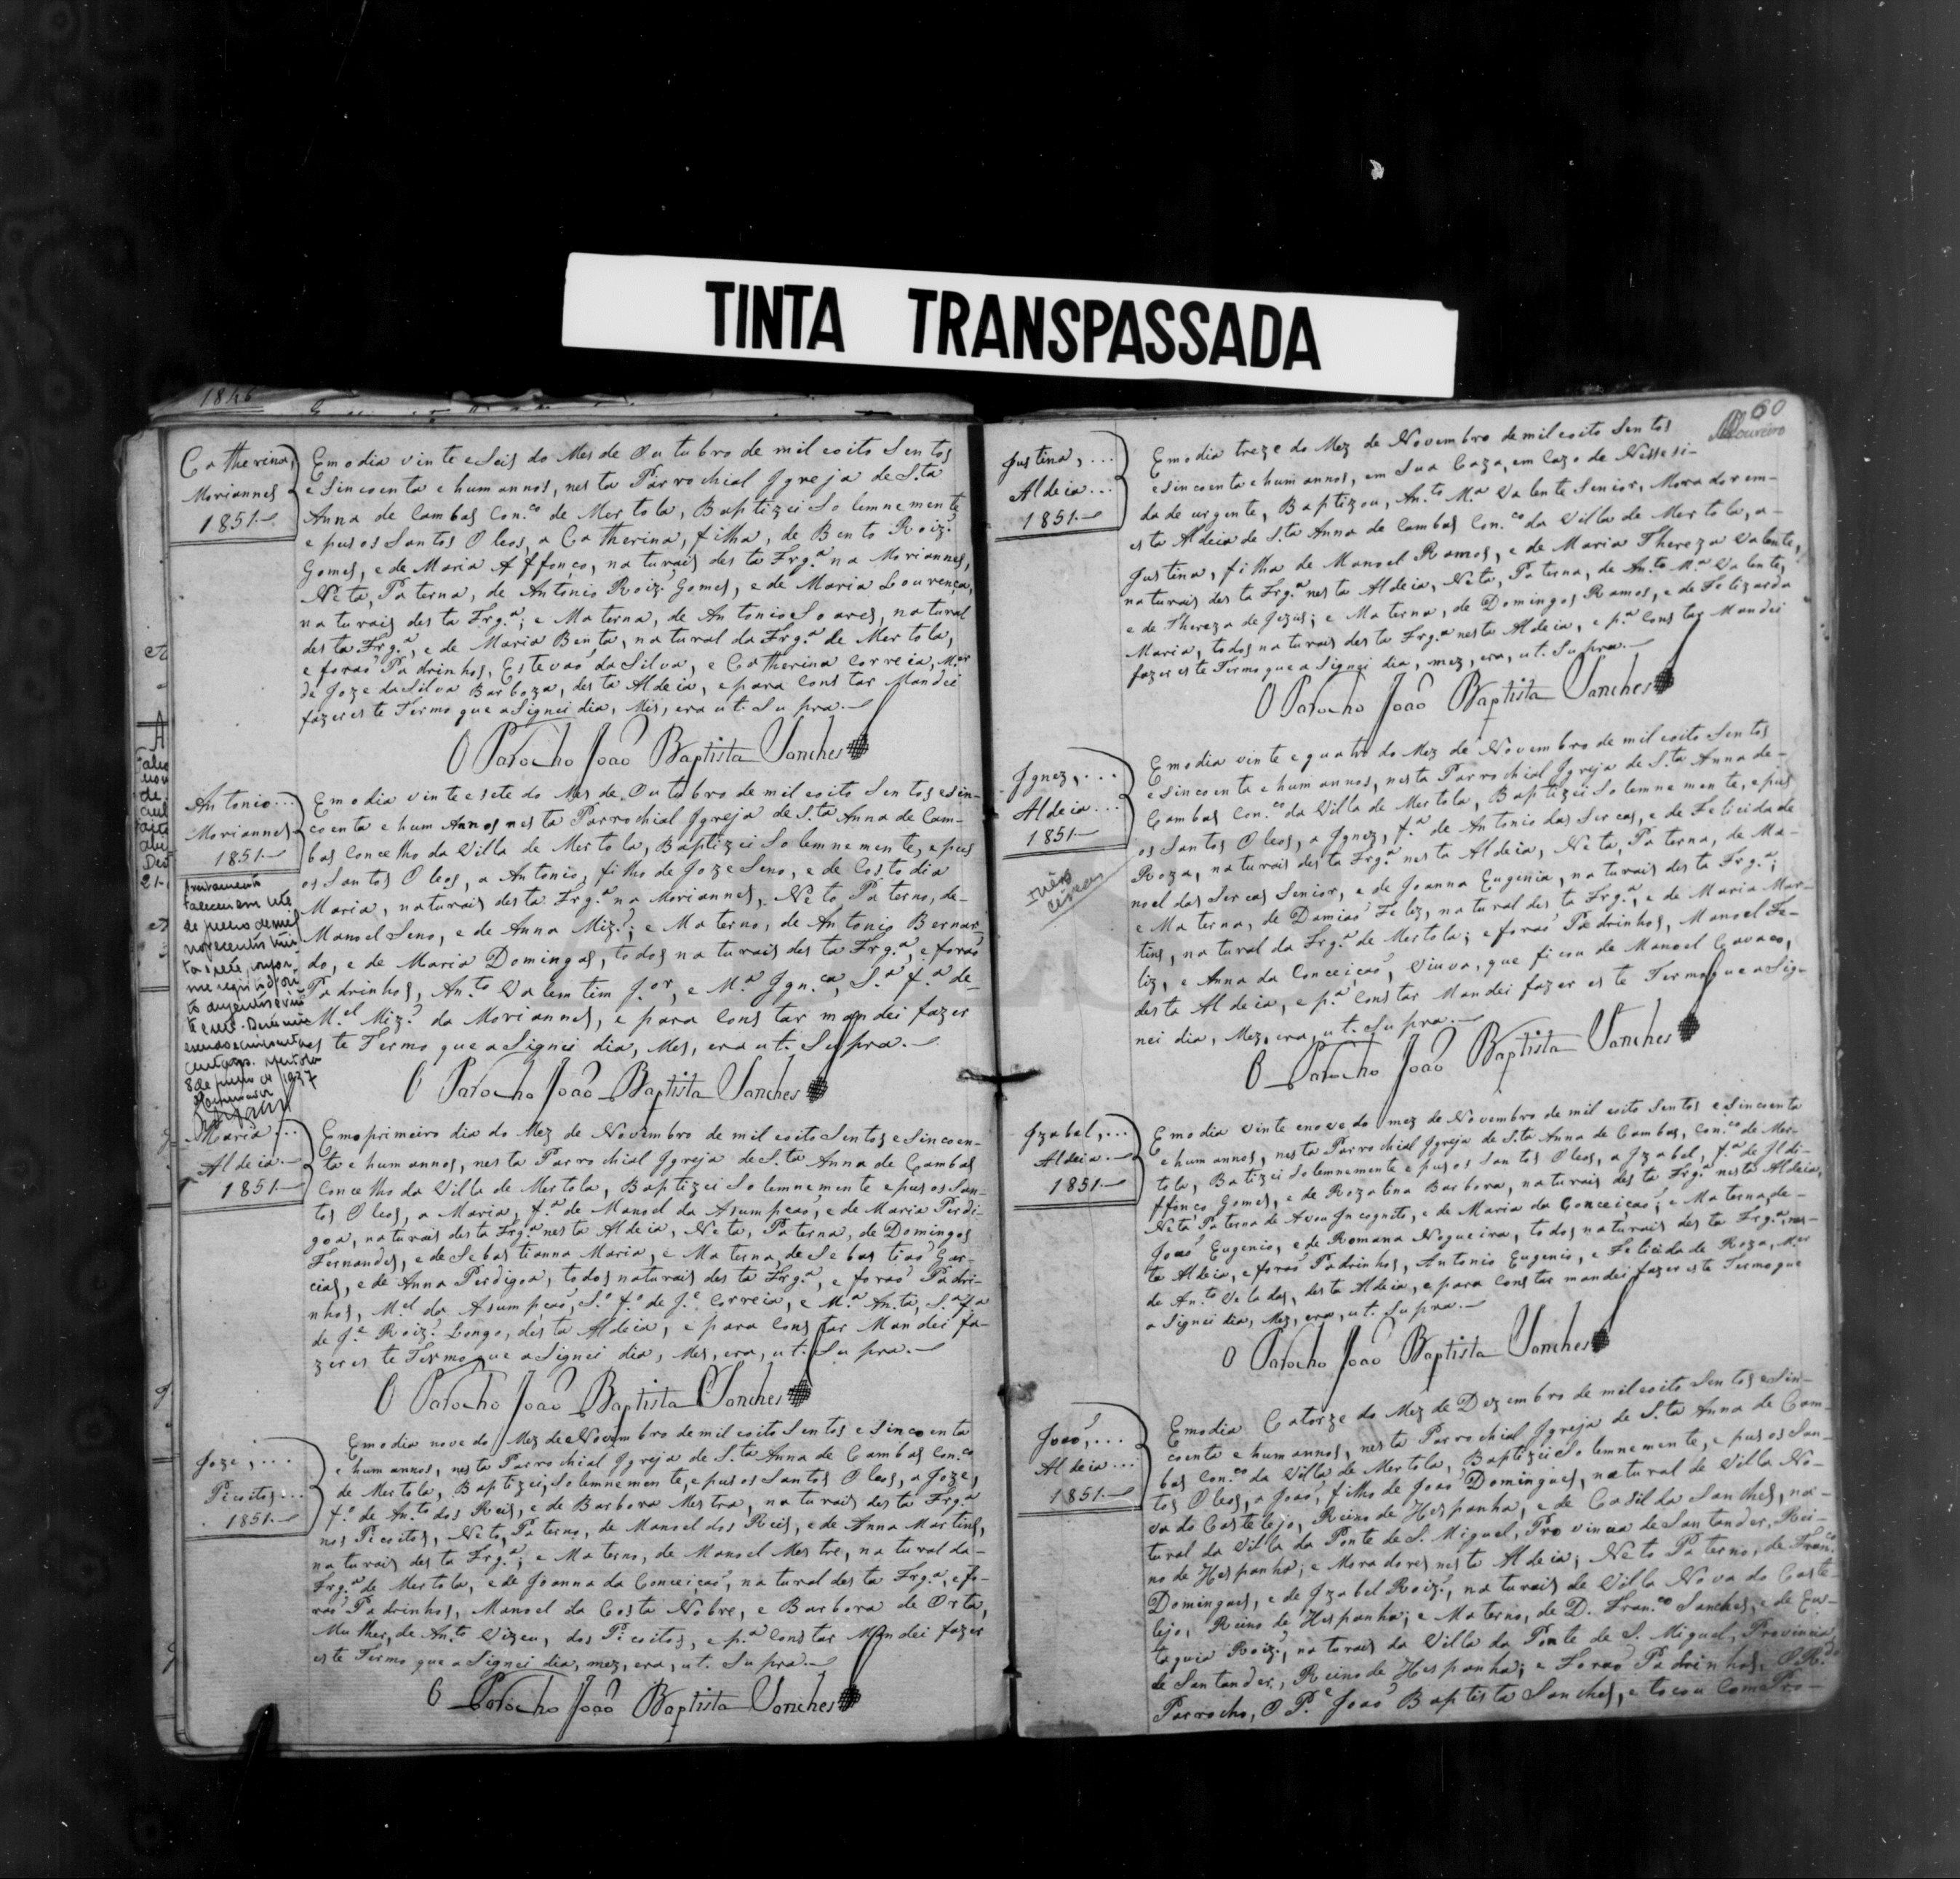 TINTA TRANSPASSADA
1846
Catherina,
Moriannes
1851.
Em o dia vinte e Seis do Mes de Outubro de mil e oito Sentos
e Sincoenta e hum annos, nesta Parrochial Jgreja de S.ta
Anna de Cambas Con.co de Mertola, Baptizei Solemnemente
e pus os Santos Oleos, a Catherina, filha, de Bento Roiz.
Gomes, e de Maria Affonço, naturais desta Frg.a na Moriannes,
Neta, Paterna, de Antonio Roiz. Gomes, e de Maria Lourença,
naturais desta Frg.a; e Materna, de Antonio Soares, natural
desta Frg.a, e de Maria Benta, natural da Frg.a de Mertola,
e foraõ Padrinhos, Estevaõ da Silva, e Catherina Correia, M.er
de Joze da Silva Barboza, desta Aldeia, e para Constar Mandei
fazer este Termo que a Signei dia, Mes, era ut. Supra.
O Parocho Joaõ Baptista Sanches
Antonio...
Moriannes
1851.
Em o dia vinte e sete do Mes de Outubro de mil e oito Sentos e sin-
coenta e hum Annos nesta Parrochial Jgreja de S.ta Anna de Cam-
bas Concelho da Villa de Mertola, Baptizei Solemnemente, e pus
os Santos Oleos, a Antonio, filho de Joze Seno, e de Costodia
Maria, naturais desta Frg.a na Moriannes, Neto, Paterno, de-
Manoel Seno, e de Anna Miz.; e Materno, de Antonio Bernar-
do, e de Maria Domingas, todos naturais desta Frg.a, e foraõ
Padrinhos, An.to Valentim J.or, e M.a Jgn.ca, S.a f.a de-
M.el Miz. da Moriannes, e para Constar mandei fazer
este Termo que a Signei dia, Mes, era ut. Supra.
O Parocho Joaõ Baptista Sanches
faleceu em sete
de julho de mil
novecentos trin-
ta e sete
8 de julho de 1937
Maria...
Aldeia.
1851
Em o primeiro dia do Mez de Novembro de mil e oito Sentos e Sincoen-
ta e hum annos, nesta Parrochial Jgreja de S.ta Anna de Cambas
Concelho da Villa de Mertola, Baptizei Solemnemente e pus os San-
tos Oleos, a Maria, f.a de Manoel da Asumpçaõ, e de Maria Perdi-
goa, naturais desta Frg.a nesta Aldeia, Neta, Paterna, de Domingos
Fernandes, e de Sebastianna Maria, e Materna, de Sebastiaõ Gar-
cias, e de Anna Perdigoa, todos naturais desta Frg.a, e foraõ Padri-
nhos, M.el da Asumpçaõ, S.o f.o de J.e Correia, e M.a An.ta, S.a f.a
de J.e Roiz. Longo, desta Aldeia, e para Constar Mandei fa-
zer este Termo que a Signei dia, Mes, era, ut. Supra.
O Parocho Joaõ Baptista Sanches
Joze,...
Picoitos...
1851.
Em o dia nove do Mez de Novembro de mil e oito Sentos e Sincoenta
e hum annos, nesta Parrochial Jgreja de S.ta Anna de Cambas Con.co
de Mertola, Baptizei, Solemnemente, e pus os Santos Oleos, a Joze,
f.o de An.to dos Reis, e de Barbora Mestra, naturais desta Frg.a
nos Picoitos, Neto, Paterno, de Manoel dos Reis, e de Anna Martins,
naturais desta Frg.a; e Materno, de Manoel Mestre, natural da-
Frg.a de Mertola, e de Joanna da Conceiçaõ, natural desta Frg.a, e fo-
raõ Padrinhos, Manoel da Costa Nobre, e Barbora de Orta,
Mulher, de An.to Vizeu, dos Picoitos, e p.a Constar Mandei fazer
este Termo que a Signei dia, mez, era, ut. Supra.
O Parocho Joaõ Baptista Sanches
60
Loureiro
Justina,...
Aldeia...
1851.
Em o dia treze do Mez de Novembro de mil e oito Sentos
e sincoenta e hum annos, em Sua Caza, em Cazo de Nissesi-
dade urgente, Baptizou, An.to M.a Valente Senior, Morador em-
esta Aldeia de S.ta Anna de Cambas Con.co da Villa de Mertola, a-
Justina, filha de Manoel Ramos, e de Maria Thereza Valente,
naturais desta Frg.a nesta Aldeia, Neta, Paterna, de An.to M.a Valente,
e de Thereza de Jezus; e Materna, de Domingos Ramos, e de Felizarda
Maria, todos naturais desta Frg.a nesta Aldeia, e p.a Constar Mandei
fazer este Termo que a Signei dia, mez, era, ut. Supra.
O Parocho Joaõ Baptista Sanches
Jgnez,...
Aldeia...
1851
Em o dia vinte e quatro do Mez de Novembro de mil e oito Sentos
e Sincoenta e hum annos, nesta Parrochial Jgreja de S.ta Anna de-
Cambas Con.co da Villa de Mertola, Baptizei Solemnemente, e pus
os Santos Oleos, a Jgnez, f.a de Antonio das Sercas, e de Felicidade
Roza, naturais desta Frg.a nesta Aldeia, Neta, Paterna, de Ma-
noel das Sercas Senior, e de Joanna Eugenia, naturais desta Frg.a;
e Materna, de Damiaõ Feliz, natural desta Frg.a, e de Maria Mar-
tins, natural da Frg.a de Mertola; e foraõ Padrinhos, Manoel Fe-
liz, e Anna da Conceiçaõ, Viuva, que ficou de Manoel Cavaco,
desta Aldeia, e p.a Constar Mandei fazer este Termo que a Sig-
nei dia, Mez, era, ut. Supra.
O Parocho Joaõ Baptista Sanches
Jzabel,...
Aldeia.
1851
Em o dia vinte e nove do mez de Novembro de mil e oito Sentos e Sincoenta
e hum annos, nesta Parrochial Jgreja de S.ta Anna de Cambas, Con.co de Mer-
tola, Batizei Solemnemente e pus os Santos Oleos, a Jzabel, f.a de Jldi-
ffonço Gomes, e de Rozalina Barbora, naturais desta Frg.a nesta Aldeia,
Neta, Paterna de Avou Jncognito, e de Maria da Conceiçaõ, e Materna de-
Joaõ Eugenio, e de Romana Nogueira, todos naturais desta Frg.a, nes-
ta Aldeia, e foraõ Padrinhos, Antonio Eugenio, e Felicidade Roza, M.er
de An.to Veladas, desta Aldeia, e para Constar mandei fazer este Termo que
a Signei dia, Mez, era, ut. Supra.
O Parocho Joaõ Baptista Sanches
Joaõ,...
Aldeia...
1851.
Em o dia Catorze do Mez de Dezembro de mil e oito Sentos e Sin-
coenta e hum annos, nesta Parrochial Jgreja de S.ta Anna de Cam-
bas Con.co da Villa de Mertola, Baptizei Solemnemente, e pus os San-
tos Oleos, a Joaõ, filho de Joaõ Domingues, natural de Villa No-
va do Castelejo, Reino de Hespanha, e de Casilda Sanches, na-
tural da Villa da Ponte de S. Miguel, Provincia de Santander, Rei-
no de Hespanha; e Moradores nesta Aldeia, Neto Paterno, de Fran.co
Domingues, e de Jzabel Roiz., naturais de Villa Nova do Caste-
lejo, Reino de Hespanha; e Materno, de D. Fran.co Sanches, e de Eus-
taquia Roiz., naturais da Villa da Ponte de S. Miguel, Provincia
de Santander, Reino de Hespanha; e Foraõ Padrinhos, O R.do
Parrocho, O P.e Joaõ Baptista Sanches, e tocou Com Pro-